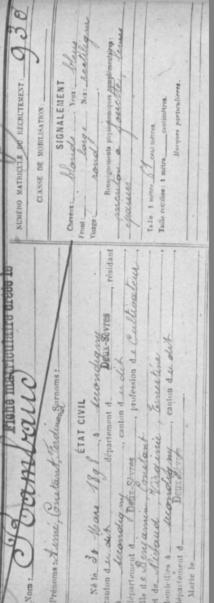 Nom :
Prénoms : Aimé Constant Ferdinand Surnoms :
ÉTAT CIVIL
Né le 21 Mars 1898, à Secondigny
canton du dit, département d Deux-Sèvres, résidant
Secondigny, canton du dit
département d Deux-Sèvres, profession de Cultivateur
de Benjamin Constant
Eugénie, Ernestine
domiciliés à Secondigny, canton du dit
département d Deux-Sèvres
Marié le
NUMÉRO MATRICULE DU RECRUTEMENT : 930
CLASSE DE MOBILISATION
SIGNALEMENT
Cheveux : blonds Yeux : bleus
Front : large Nez : rectiligne
Visage : rond
Renseignements physionomiques complémentaires :
menton à fossette, lèvres
épaisses
Taille : 1 mètre, 67 centimètres.
Taille rectifiée : 1 mètre, centimètres.
Marques particulières.